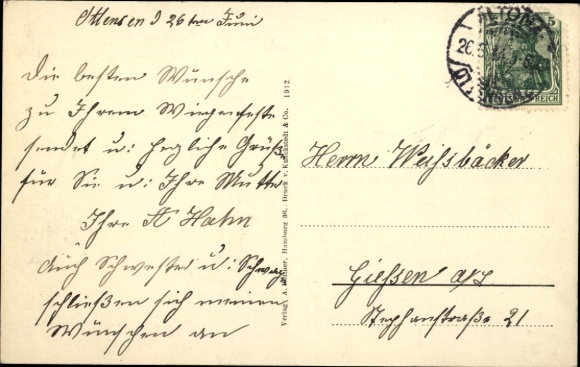 Ottensen d 26ten Juni
Die besten Wünsche
zu Ihrem Wiegenfeste
sendet u: herzliche Grüße
für Sie u: Ihre Mutter
Ihre A Hahn
Auch Schwester u: Schwag
schließen sich meinen
Wünschen an
Verlag A. Hamburg 36, Druck v. & Co. 1912
5
ALTONA
26.6.
DEUTSCHES REICH
Herrn Weihsbäcker
Giessen a/L
Stephanstraße 21